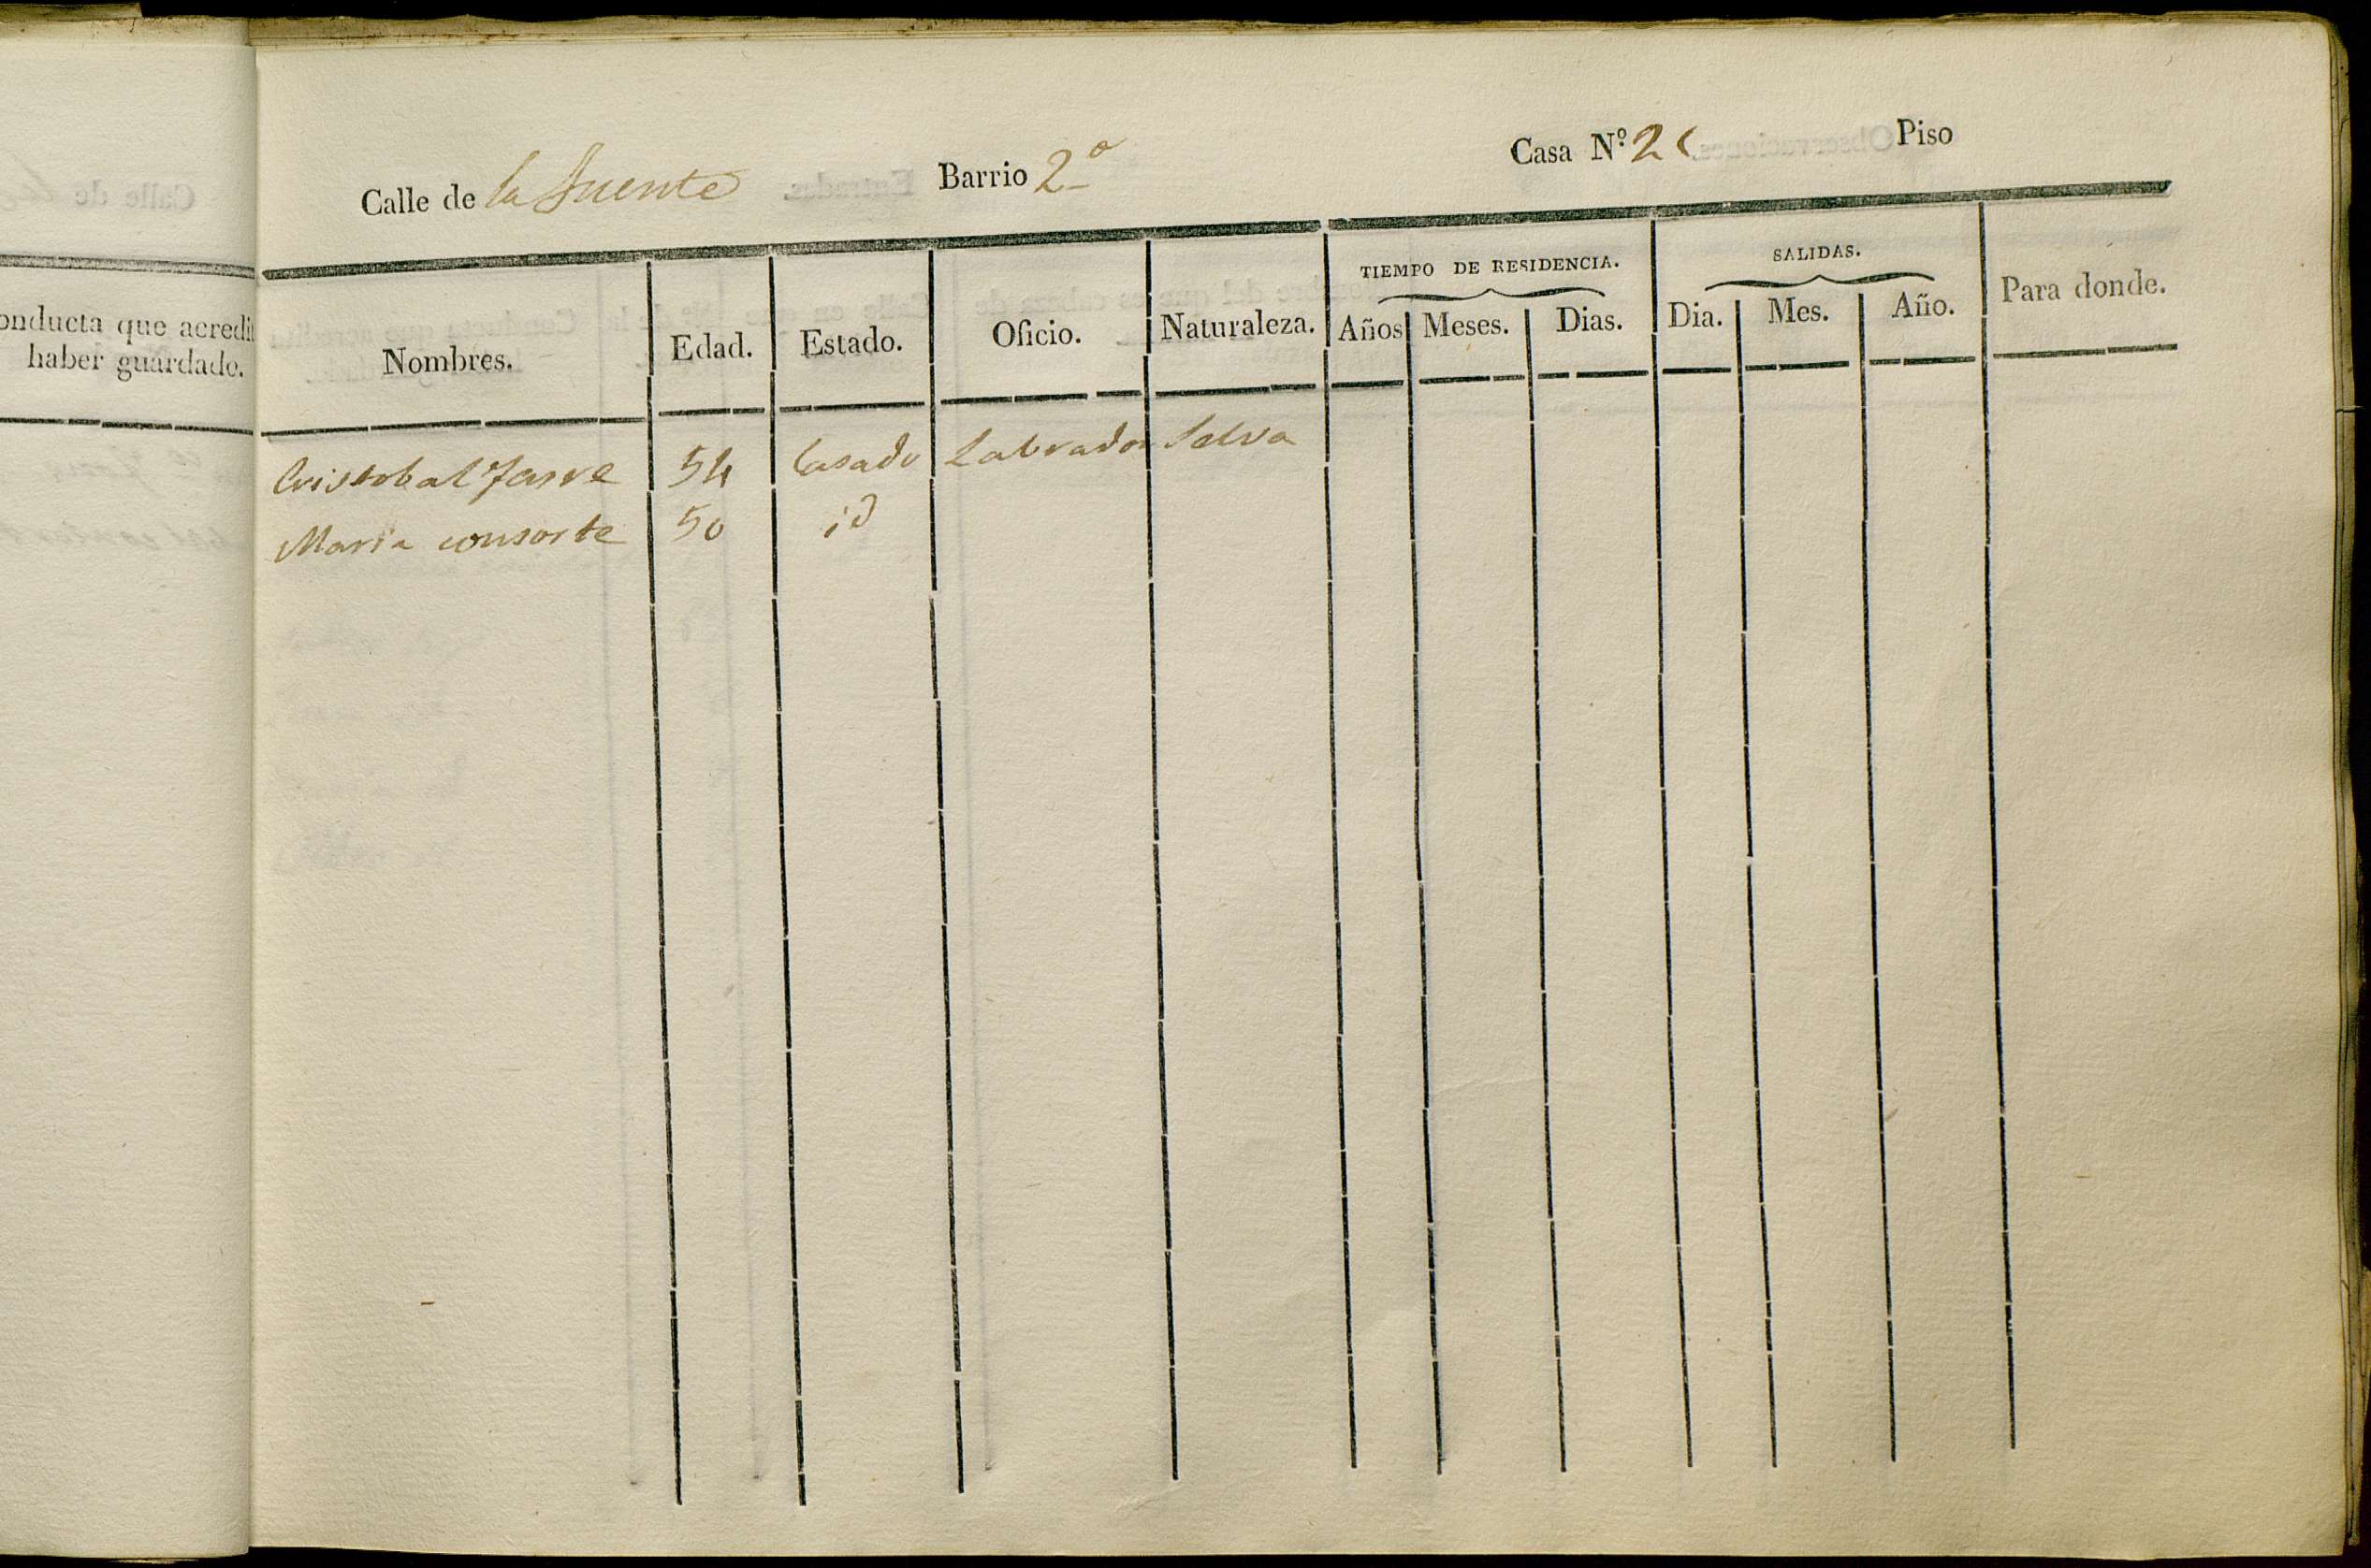 onducta que acredi
haber guardado.
Calle de la fuente Barrio 2º Casa Nº 2 Piso
TIEMPO DE RESIDENCIA. SALIDAS.
Nombres. Edad. Estado. Oficio. Naturaleza. Años Meses. Dias. Dia. Mes. Año. Para donde.
Cristobal 54 Casado Labrador Selva
Maria consorte 50 id